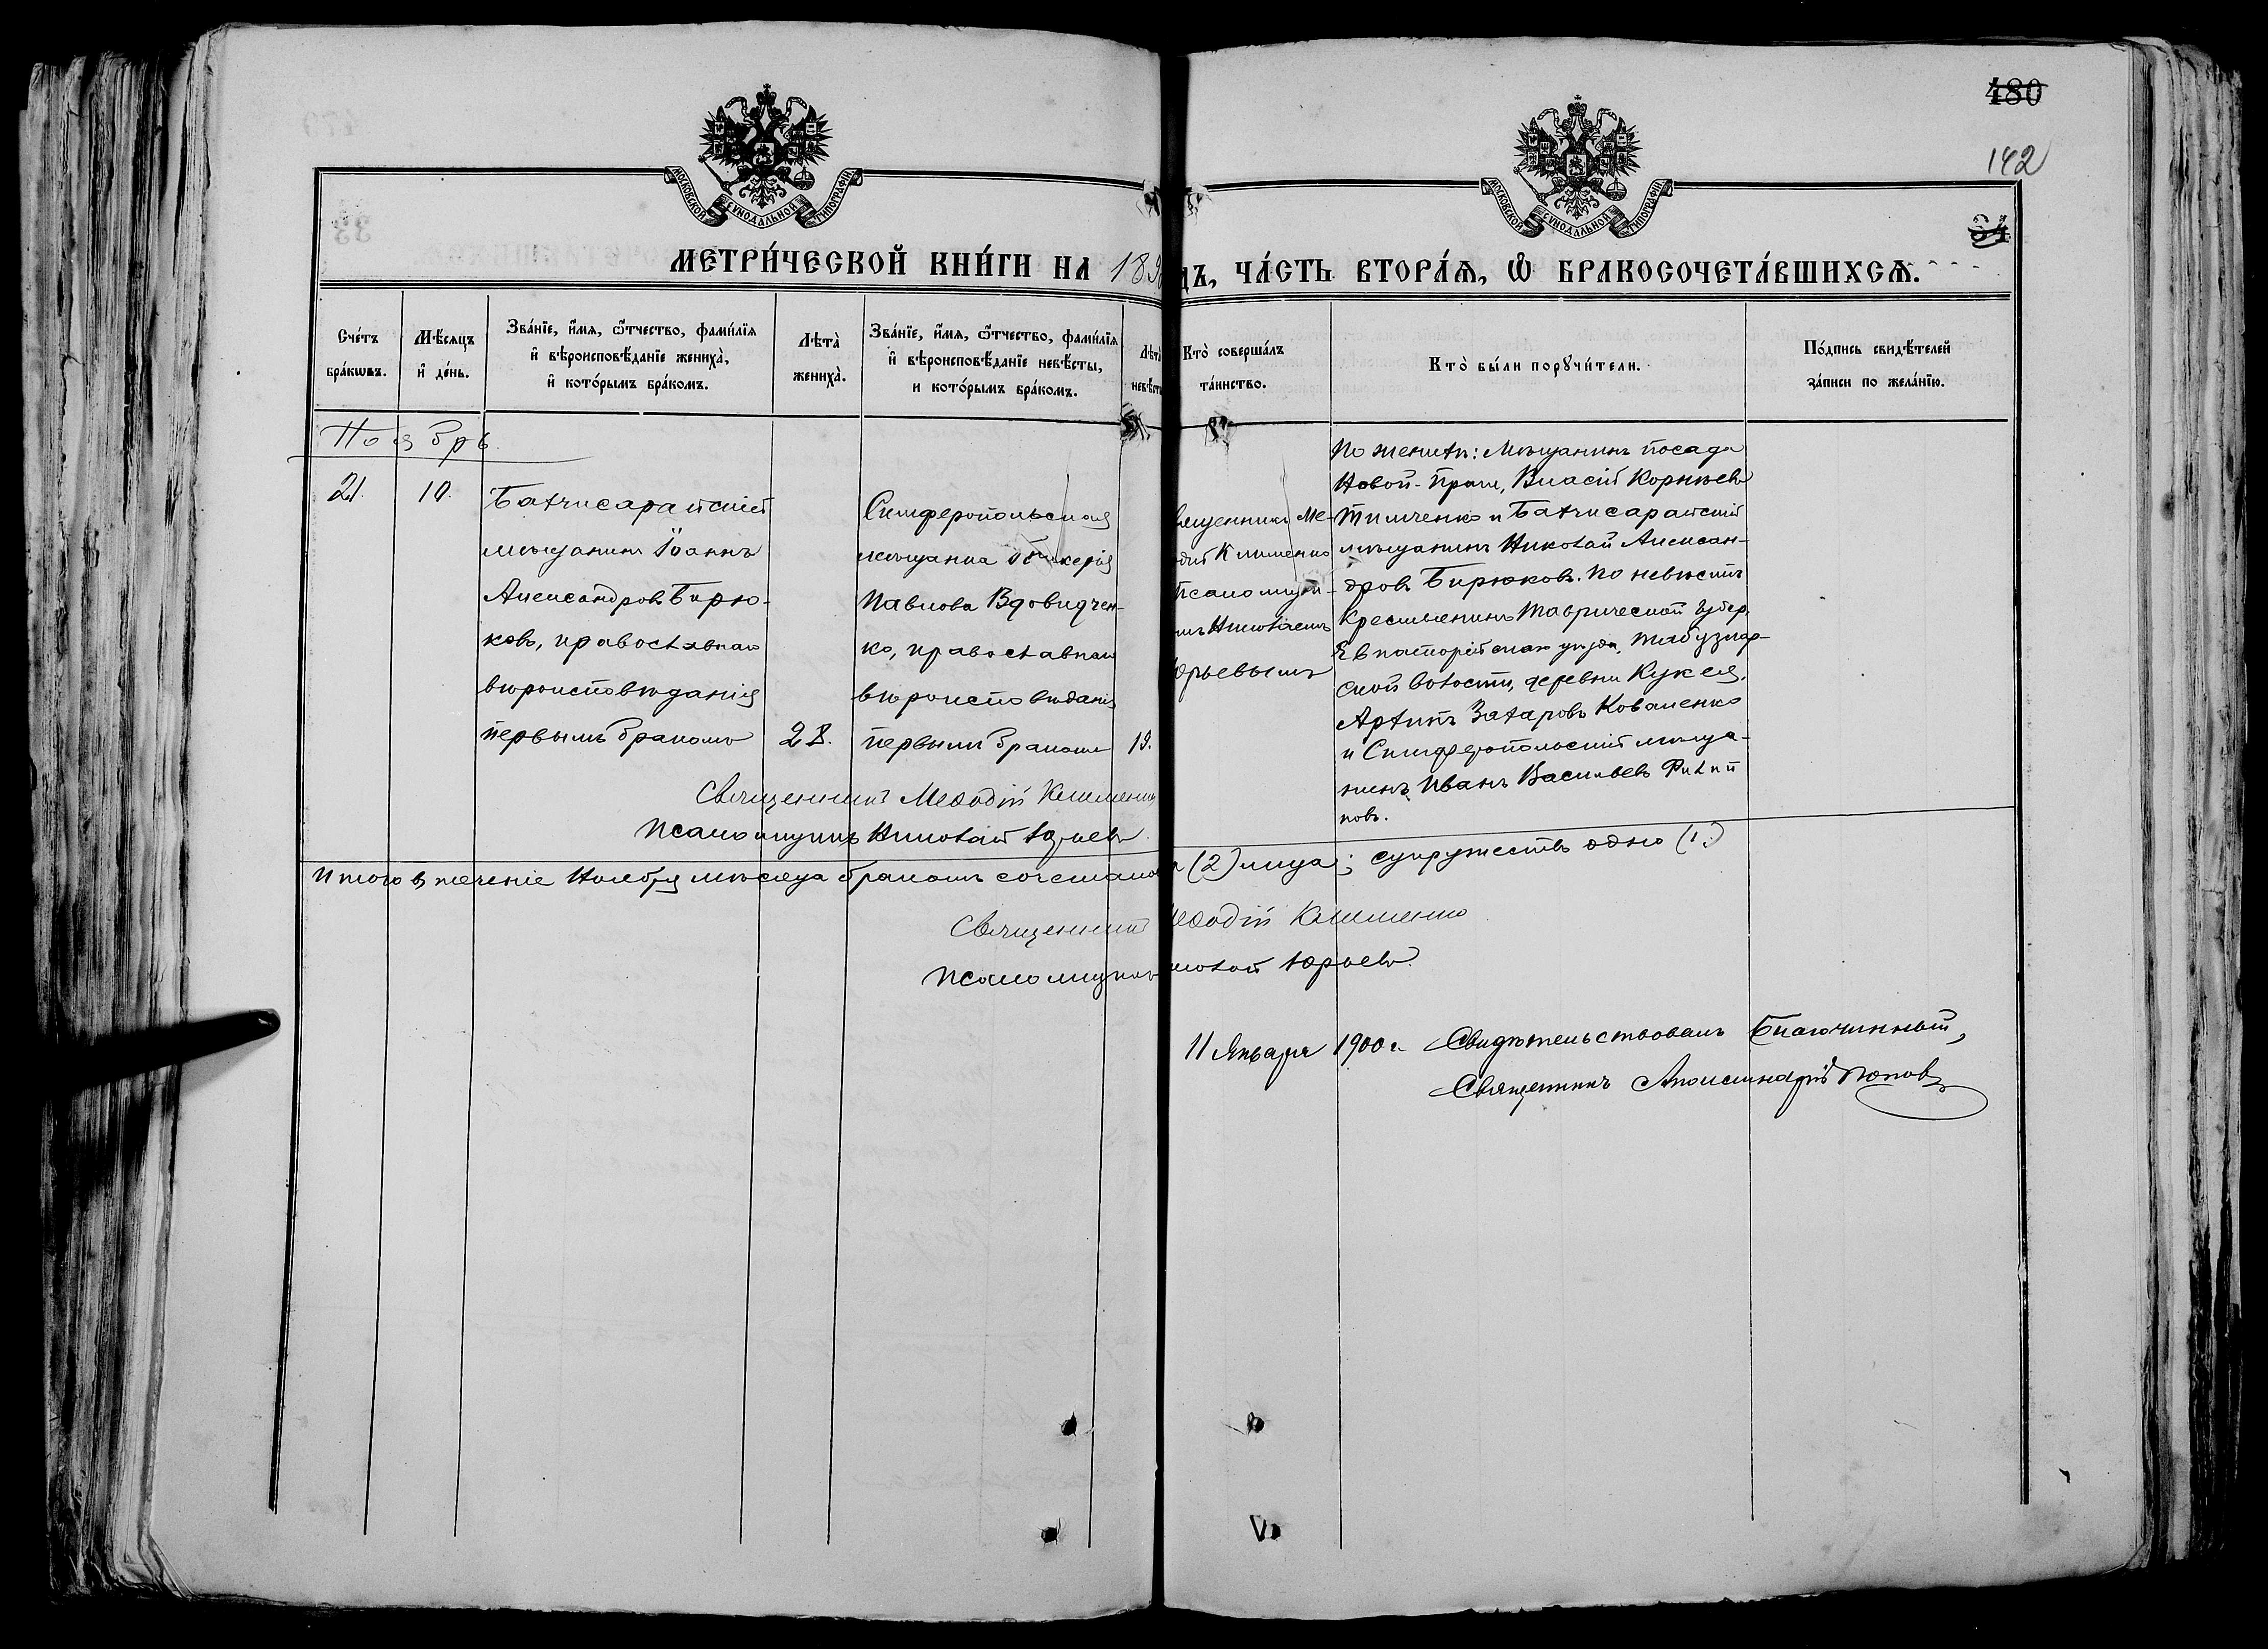 480
142
34
МОСКОВСКОЙ СѴНОДАЛЬНОЙ ТИПОГРАФІИ
МОСКОВСКОЙ СѴНОДАЛЬНОЙ ТИПОГРАФІИ
МЕТРИ́ЧЕСКОЙ КНИ́ГИ НА 189
ДЪ, ЧА́СТЬ ВТОРА́Ѧ, Ѡ БРАКОСОЧЕТА́ВШИХСѦ.
Сче́тъ бра́кѡвъ.
Мѣ́сяцъ и҆ де́нь.
Зва́нїе, и҆́мѧ, ѻ҆́тчество, фами́лїѧ и҆ вѣроисповѣ́данїе жениха̀, и҆ кото́рымъ бра́комъ.
Лѣта̀ жениха̀.
Зва́нїе, и҆́мѧ, ѻ҆́тчество, фами́лїѧ и҆ вѣроисповѣ́данїе невѣ́сты, и кото́рымъ бра́комъ.
Лѣта̀ невѣ́сты
Кто̀ соверша́лъ та́инство.
Кто̀ бы́ли порꙋчи́тели.
По́дпись свидѣ́телей за́писи по жела́нїю.
Ноябрь.
21.
10.
Бахчисарайскій
мѣщанинъ Іоаннъ
Александровъ Бирю-
ковъ, православнаго
вѣроисповѣданія
первымъ бракомъ
28.
Симферопольская
мѣщанка Гликерія
Павлова Вдовидчен-
ко, православнаго
вѣроисповѣданія
первымъ бракомъ
19.
вященникъ Ме-
дій Клименко
Псаломщи-
мъ Николаемъ
Юрьевымъ
По женихѣ: Мѣщанинъ посада
Новой-Праги, Власій Корнѣевъ
Тимченко и Бахчисарайскій
мѣщанинъ Николай Алексан-
дровъ Бирюковъ. По невѣстѣ
Крестьянинъ Таврической губер.
Евпаторійскаго уѣзда, Табулдар-
ской волости, деревни Кукея,
Архипъ Захаровъ Коваленко
и Симферопольскій мѣща-
нинъ Иванъ Васильевъ Филип
повъ.
Священникъ Меѳодій Клименко
Псаломщикъ Николай Юрьевъ.
Итого въ теченіе Ноября мѣсяца бракомъ сочетано (2) лица; супружествъ одно (1.)
Священникъ Меѳодій Клименко
Псаломщикъ Николай Юрьевъ.
11 Января 1900 г. Свидѣтельствовалъ Благочинный,
Священникъ Аполлинарій Поповъ